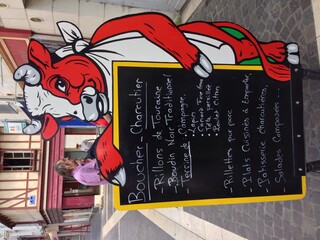 Boucher Charcutier
- Rillons de Touraine
- Boudin Noir Traditionnel
- Terrine de Campagne,
- Lapin
- Boulet Citron
- Rillettes pur porc
- Plats Cuisinés à Emporter,
- Patisserie charcutières,
- Salades Composées ...